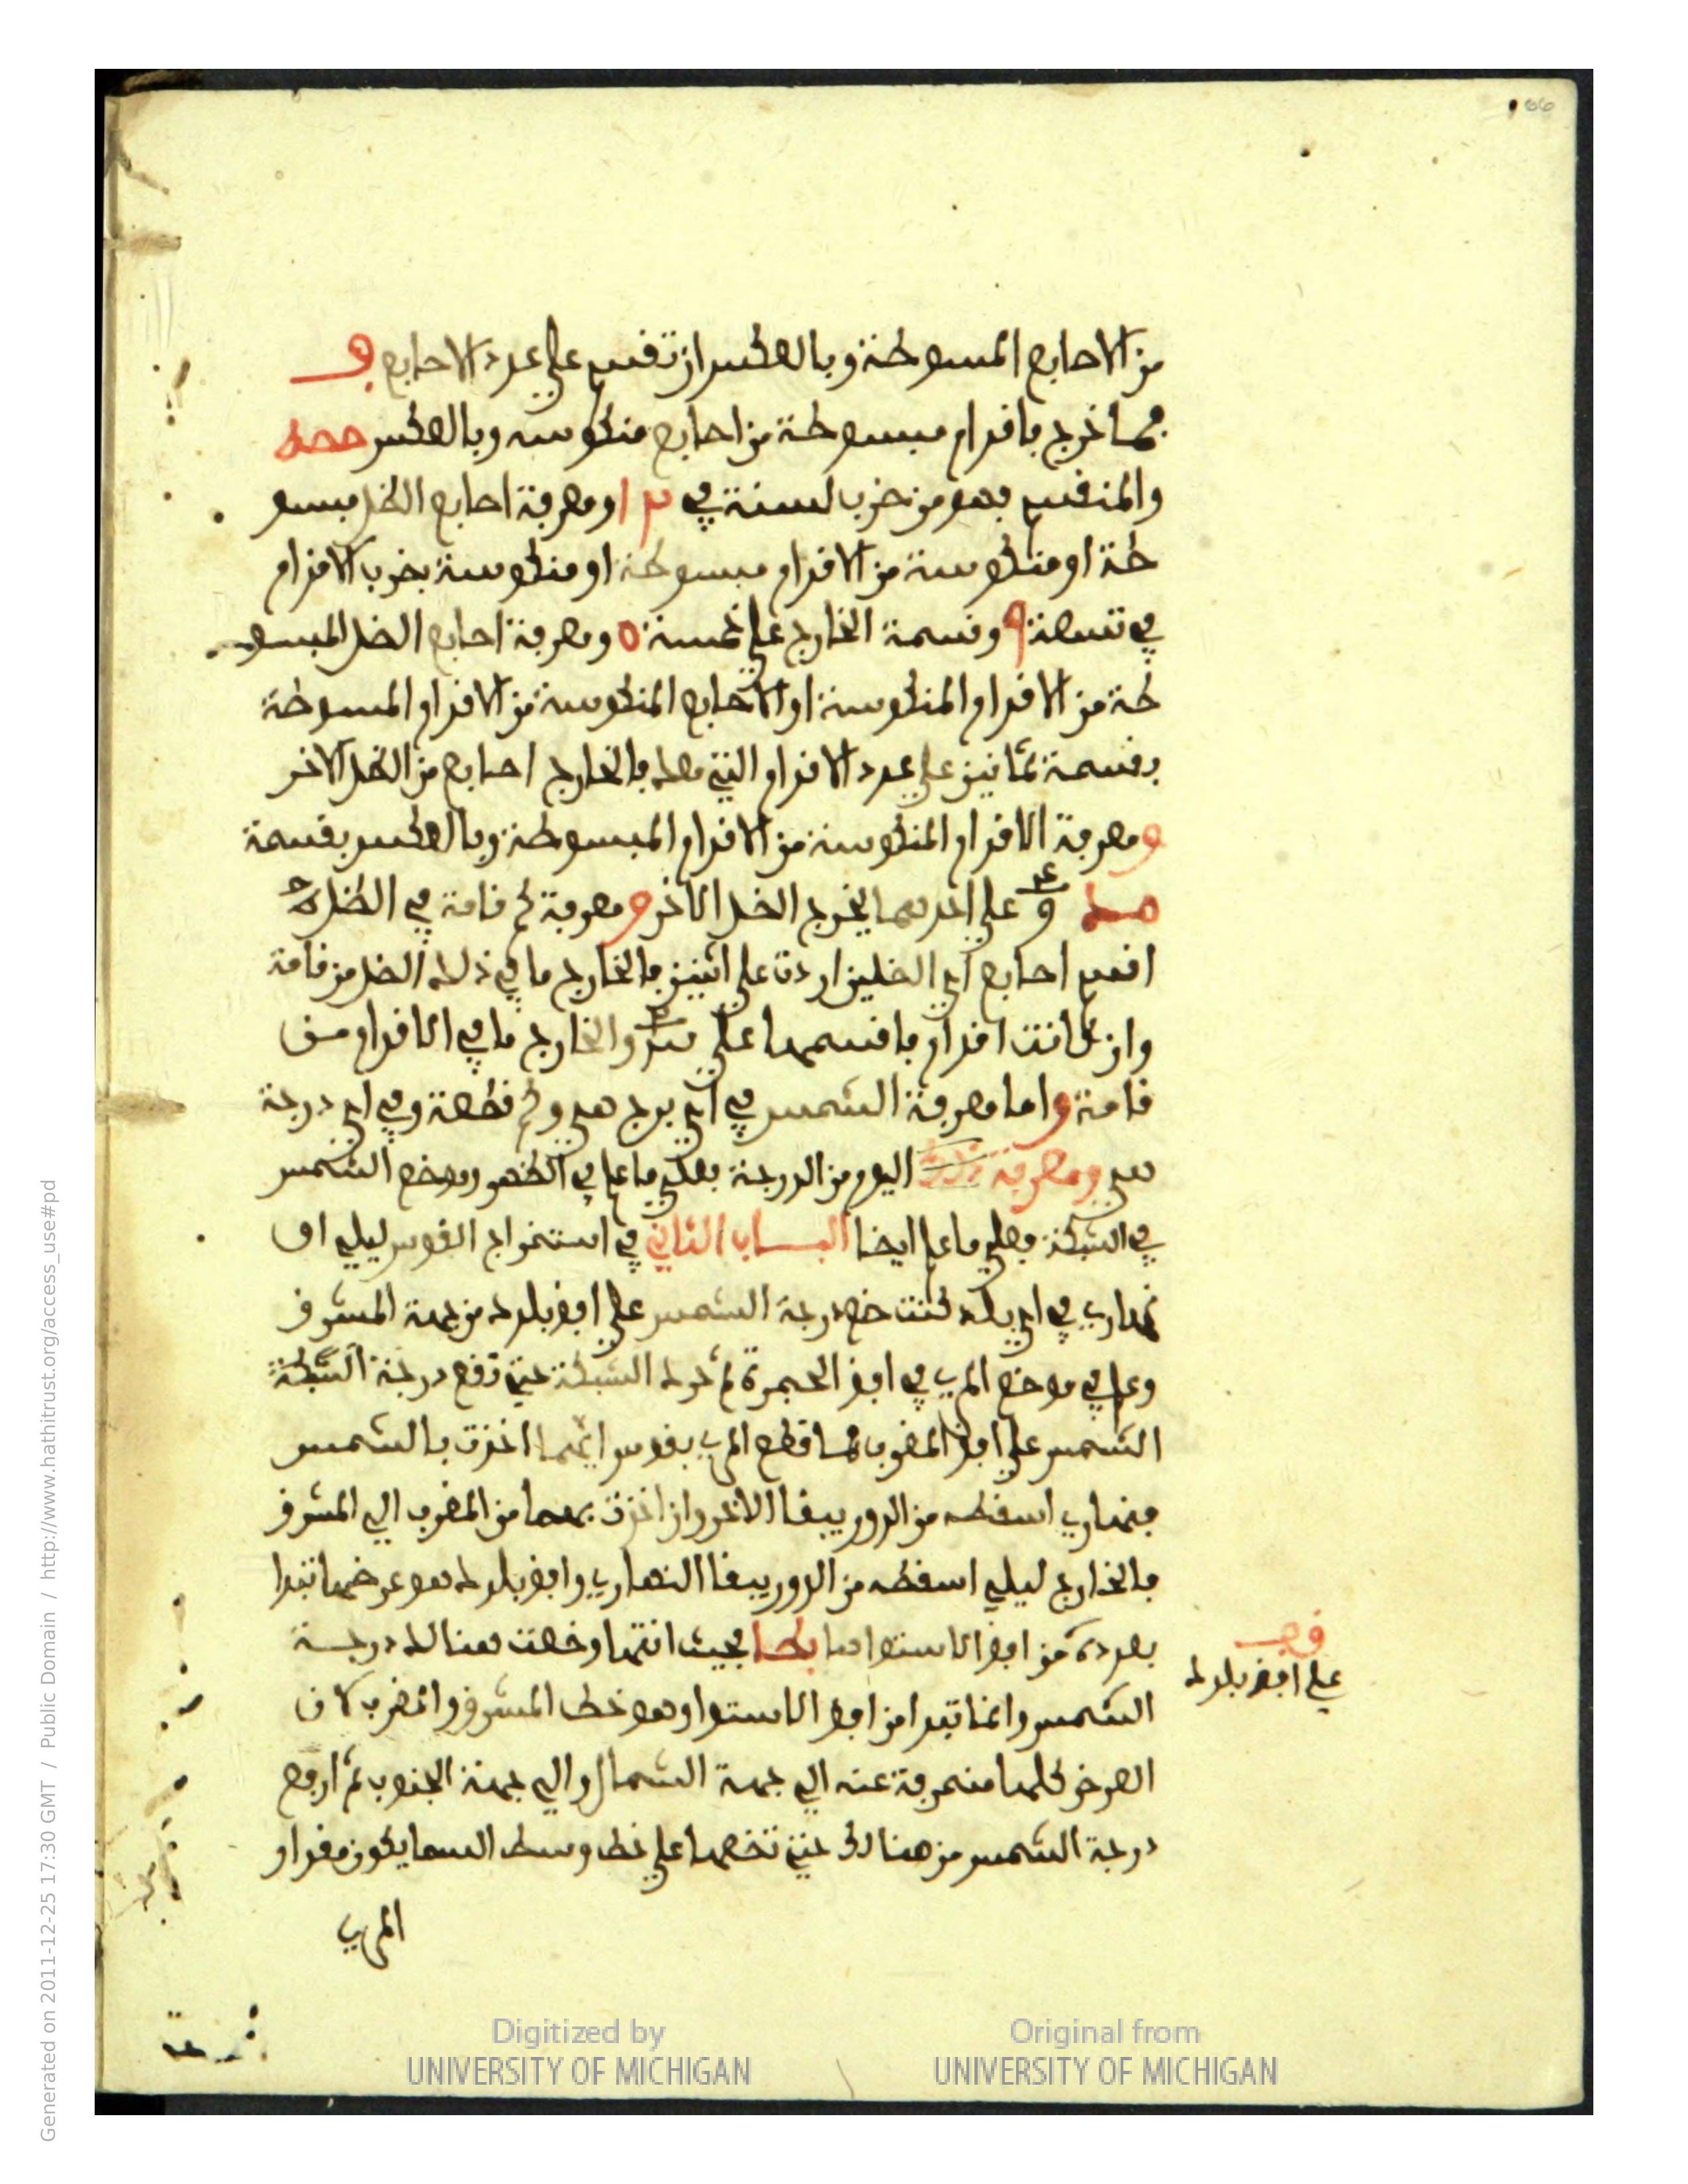 من الاصابع المبسوطة وبالعكس ان تقسم على عدد الاصابع
فما خرج فاقدام مبسوطة من اصابع منكوسة وبالعكس
والمنقسم فهو من ضرب لسنة في ومعرفة اصابع الظل مبسو
طة او منكوسة من الاقدام مبسوطة او منكوسة بضرب الاقدام
في تسعة ٩ وقسمة الخارج على خمسة ٥ ومعرفة اصابع الظل المبسو
طة من الاقدام المنكوسة او الاصابع المنكوسة من الاقدام المبسوطة
بقسمة ثمانين على عدد الاقدام التي معك فالخارج اصابع من الظل الاخر
ومعرفة الاقدام المنكوسة من الاقدام المبسوطة وبالعكس بقسمة
على احدهما يخرج الظل الاخر ومعرفة كم قامة في الظل
اقسم اصابع اي الظلين اردت على اثنين فالخارج ما في ذلك الظل من قامة
وان كانت اقدام فاقسمها على والخارج ما في الاقدام من
قامة واما معرفة الشمس في اي برج هي وكم قطعة وفي اي درجة
هي ومعرفة اليوم من الدرجة فعلى ما علم في الظهور وموضع الشمس
في الشبكة فعلى ما علم ايضا الباب الثاني في استخراج القوس ليلي او
نهاري في اي بلد كنت ضع درجة الشمس على افق بلدك من جهة المشرق
وعلم في موضع المري في افق الحجرة ثم حرك الشبكة حتى تقع درجة الشبكة
الشمس على افق المغرب فما قطع المري بقوس انما اخذت بالشمس
فنهاري اسقطه من الدور يبقا الاخر وان اخذت بها من المغرب الى المشرق
فالخارج ليلي اسقطه من الدور يبقا النهاري وافق بلدك هو عرضها تبدا
بعدده من افق الاستوا فبحيث انتها وضعت هنالك درجة
الشمس وانما تبدا من افق الاستوا وهو خط المشرق والمغرب لان
العرض كلها منحرفة عنه الى جهة الشمال والى جهة الجنوب ثم ارفع
درجة الشمس من هنالك حتى تضعها على خط وسط السما يكون مقدار
المري
على افق بلدك
Generated on 2011-12-25 17:30 GMT / Public Domain / http://www.hathitrust.org/access_use#pd
Digitized by
UNIVERSITY OF MICHIGAN
Original from
UNIVERSITY OF MICHIGAN